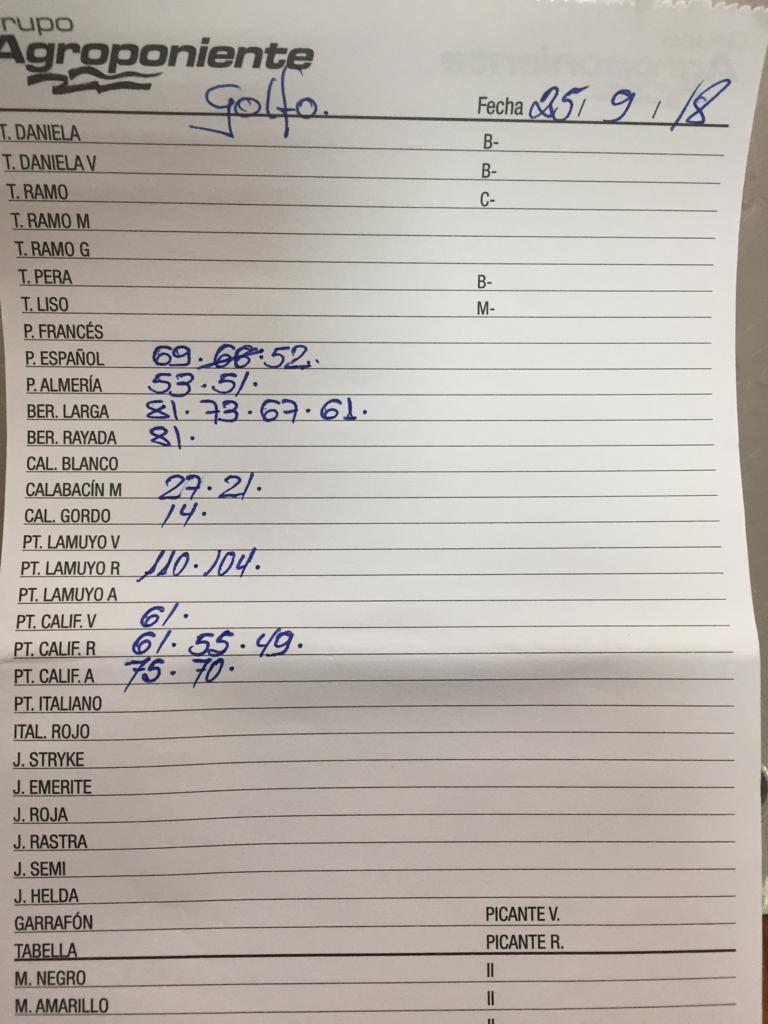 rupo
Agroponiente
Golfo.
Fecha 25 / 9 / 18
T. DANIELA B-
T. DANIELA V B-
T. RAMO C-
T. RAMO M
T. RAMO G
T. PERA B-
T. LISO M-
P. FRANCÉS
P. ESPAÑOL 69. 66. 52.
P. ALMERÍA 53. 51.
BER. LARGA 81. 73. 67. 61.
BER. RAYADA 81.
CAL. BLANCO
CALABACÍN M 27. 21.
CAL. GORDO 14.
PT. LAMUYO V
PT. LAMUYO R 110. 104.
PT. LAMUYO A
PT. CALIF. V 61.
PT. CALIF. R 61. 55. 49.
PT. CALIF. A 75. 70.
PT. ITALIANO
ITAL. ROJO
J. STRYKE
J. EMERITE
J. ROJA
J. RASTRA
J. SEMI
J. HELDA
GARRAFÓN PICANTE V.
TABELLA PICANTE R.
M. NEGRO II
M. AMARILLO II
II